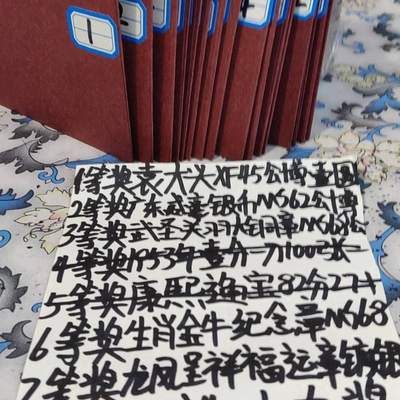 1
2
4
1等奖袁大头XF45公博壹圆
2等奖广东咸丰银币MS62公博
3等奖武圣关羽大铜章MS68
4等奖1953年壹分一刀100张
5等奖康熙通宝82分27+
6等奖生肖金牛纪念章MS68
7等奖龙凤呈祥福运章镀银